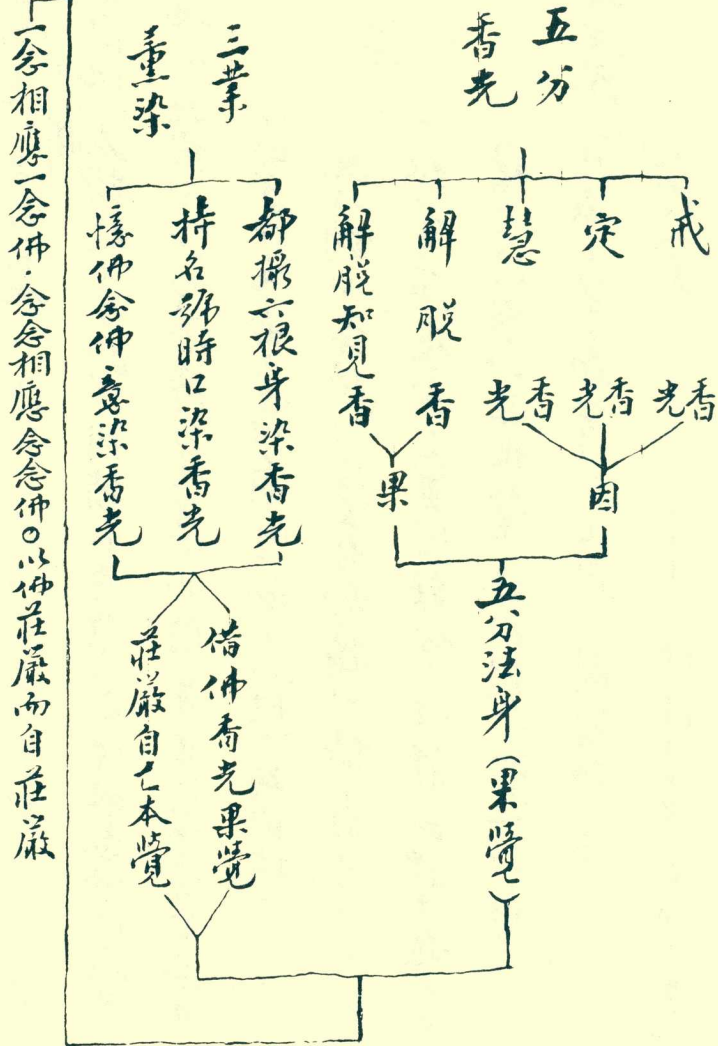 五分
香光
戒香光
定香光
慧香光
解脫香
解脫知見香
因
果
五分法身（果覺）
三業
薰染
都攝六根身染香光
持名號時口染香光
憶佛念佛意染香光
借佛香光果覺
莊嚴自己本覺
一念相應一念佛．念念相應念念佛。以佛莊嚴而自莊嚴